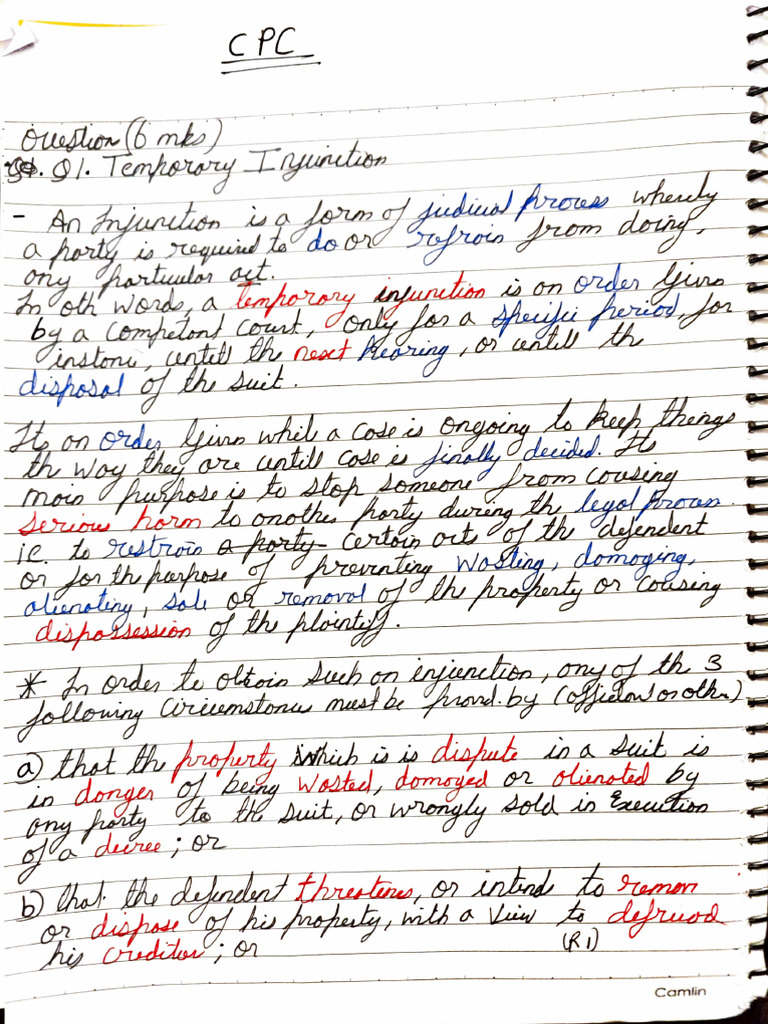 CPC
Question (6 mks)
Q1. Temporary Injunction
- An Injunction is a form of judicial process whereby
a party is required to do or refrain from doing,
any particular act.
In oth words, a temporary injunction is an order given
by a competent court, only for a specific period, for
instance, untill the next hearing, or untill the
disposal of the suit.
Its an order given while a case is ongoing to keep things
the way they are untill case is finally decided. Its
main purpose is to stop someone from causing
serious harm to another party during the legal process.
ie. to restrain a party certain acts of the defendent
or for the purpose of preventing wasting, damaging,
alienating, sale or removal of the property or causing
dispossession of the plaintiff.
* In order to obtain such an injunction, any of th 3
following circumstances must be proved. by (affidavit or othr)
a) that the property which is is dispute in a suit is
in danger of being wasted, damaged or alienated by
any party to the suit, or wrongly sold in Execution
of a decree; or
b) that the defendent threatenes, or intends to remove
or dispose of his property, with a view to defruad
his creditor; or (R1)
Camlin